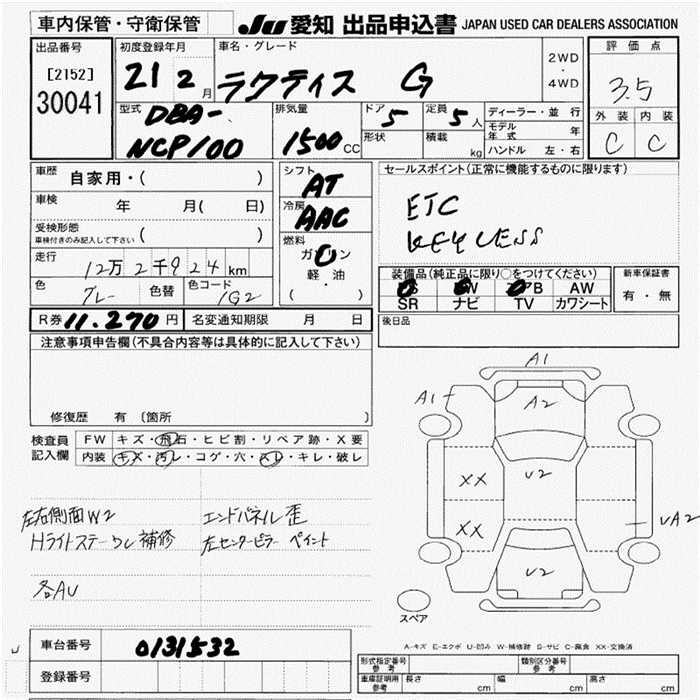 車内保管・守衛保管 JU 愛知 出品申込書 JAPAN USED CAR DEALERS ASSOCIATION
出品番号 [2152] 30041
初度登録年月 21 2月
車名・グレード ラクティス G
2WD・4WD
評価点 3.5
外装 C 内装 C
型式 DBA-NCP100
排気量 1500 CC
ドア 5 定員 5人
形状 積載 kg
ディーラー・並行
モデル年式 年
ハンドル 左・右
車歴 自家用・( )
車検 年 月( 日)
受検形態 車検付きのみ記入して下さい ( )
走行 12万2千924km
色 グレー 色替 色コード 1G2
シフト AT
冷房 AAC
燃料 ガソリン 軽・油 ( )
セールスポイント(正常に機能するものに限ります)
ETC
KEYLESS
装備品(純正品に限り○をつけてください)
PS PW PB AW
SR ナビ TV カワシート
新車保証書 有・無
R券 11,270円 名変通知期限 月 日
後日品
注意事項申告欄(不具合内容等は具体的に記入して下さい)
修復歴 有 〔箇所 〕
検査員記入欄
FW キズ・飛石・ヒビ割・リペア跡・X要
内装 キズ・汚レ・コゲ・穴・スレ・キレ・破レ
左右側面W2 エンドパネル歪
Hライトステーズレ補修 左センターピラー ペイント
各AU
A1
A1 A2
XX U2
XX UA2
U2
スペア
A-キズ E-エクボ U-凹み W-補修跡 S-サビ C-腐食 XX-交換済
車台番号 0131532
登録番号
形式指定番号 参考 類別区分番号 参考
車庫証明用 参考 長さ cm 幅 cm 高さ cm